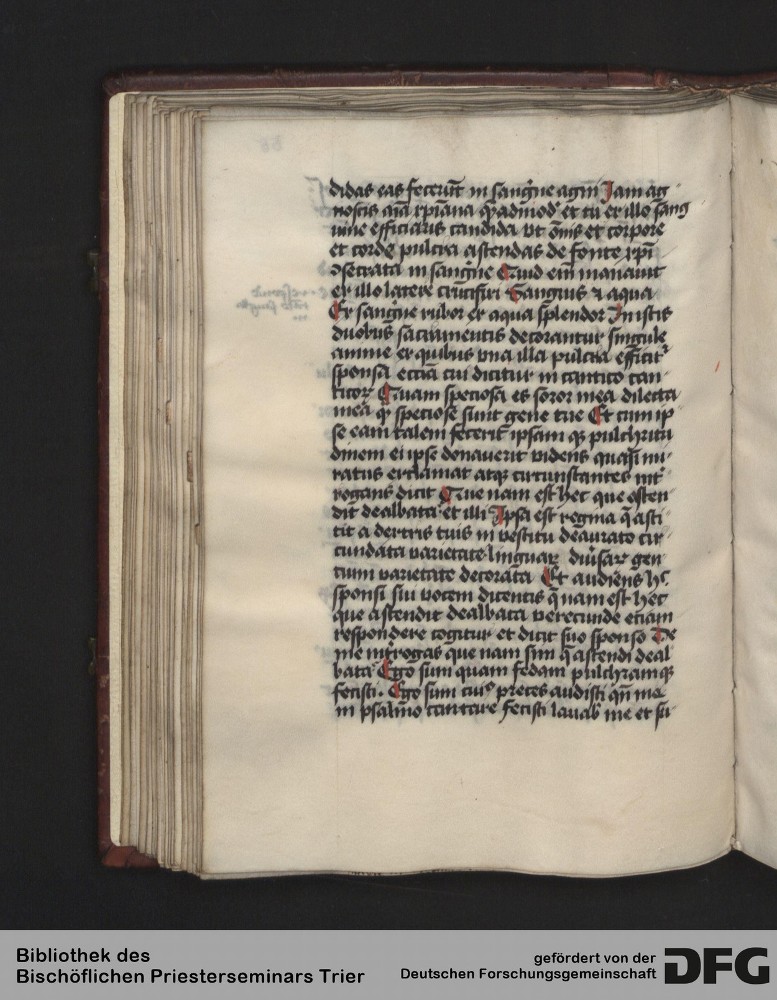 didas eas fecerūt in sangīne agni Iam ag
noscis aīa xpiana qūadmodū et tu ex illo sang
uine efficiaris candida vt om̄s et corpore
et corde pulcra ascendas de fonte xpi
ↄsecrata in sangīne Quid eīm manauit
ex illo latere crucifixi Sanguis ⁊ aqua
Ex sangīne rubor ex aqua splendor In istis
duobus sacramentis decorantur singule
anime ex quibus vna illa pulcra efficitᷣ
sponsa eccīa cui dicitur in cantico can
ticoꝝ Quam speciosa es soror mea dilecta
mea qꝫ speciose sunt gene tue Et cum ip
se eam talem fecerit ipsam qꝫ pulchritu
dinem ei ipse donauerit videns quasi mi
ratus exclamat atqꝫ circunstantes int
rogans dicit Que nam est hec que ascen
dit dealbata et illi Ipsa est regina q̄ asti
tit a dextris tuis in vestitu deaurato cir
cundata varietate linguaꝝ diuīsaꝝ gen
cium varietate decorata Et audiens hᷣ
sponsi sui vocem dicentis q̄nam est hec
que ascendit dealbata verecunde etiam
respondere cogitur et dicit suo sponso De
me introgas que nam sim q̄ ascendi deal
bata Ego sum quam fedam pulchramqꝫ
fecisti. Ego sum cuiꝰ preces audisti qn̄ me
in psalmo cantare fecisti lauab me et su
Bibliothek des
Bischöflichen Priesterseminars Trier
gefördert von der
Deutschen Forschungsgemeinschaft
DFG